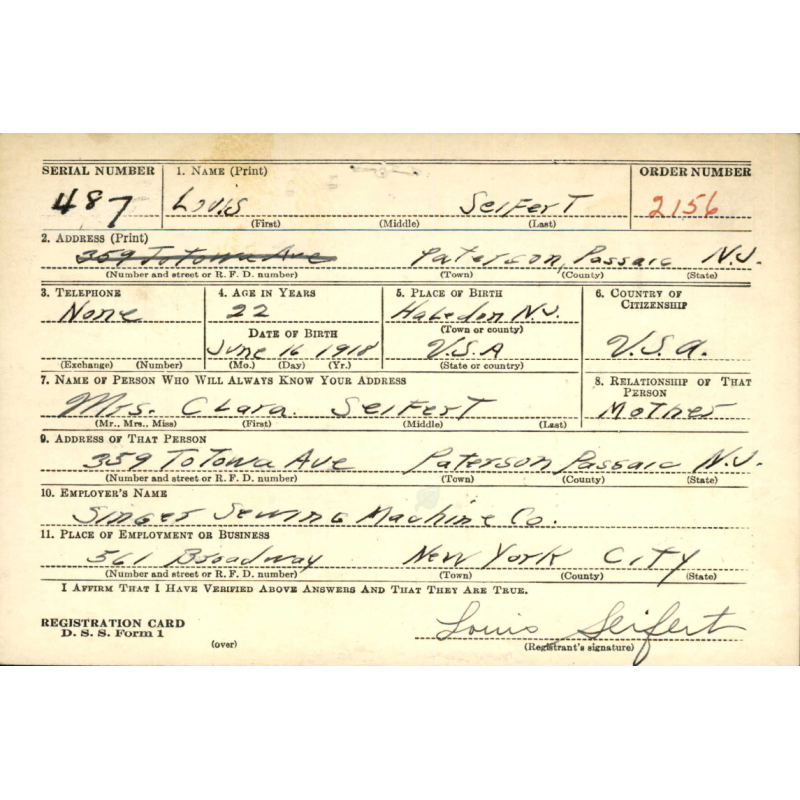 SERIAL NUMBER 1. NAME (Print) ORDER NUMBER
487 Louis Seifert 2156
(First) (Middle) (Last)
2. ADDRESS (Print)
359 Totowa Ave Paterson, Passaic N.J.
(Number and street or R. F. D. number) (Town) (County) (State)
3. TELEPHONE 4. AGE IN YEARS 5. PLACE OF BIRTH 6. COUNTRY OF CITIZENSHIP
None 22 Haledon N.J.
DATE OF BIRTH (Town or county)
June 16 1918 U.S.A U.S.A.
(Exchange) (Number) (Mo.) (Day) (Yr.) (State or country)
7. NAME OF PERSON WHO WILL ALWAYS KNOW YOUR ADDRESS 8. RELATIONSHIP OF THAT PERSON
Mrs. Clara Seifert Mother
(Mr., Mrs., Miss) (First) (Middle) (Last)
9. ADDRESS OF THAT PERSON
359 Totowa Ave Paterson Passaic N.J.
(Number and street or R. F. D. number) (Town) (County) (State)
10. EMPLOYER'S NAME
Singer Sewing Machine Co.
11. PLACE OF EMPLOYMENT OR BUSINESS
561 Broadway New York City
(Number and street or R. F. D. number) (Town) (County) (State)
I AFFIRM THAT I HAVE VERIFIED ABOVE ANSWERS AND THAT THEY ARE TRUE.
REGISTRATION CARD Louis Seifert
D. S. S. Form 1 (over) (Registrant's signature)